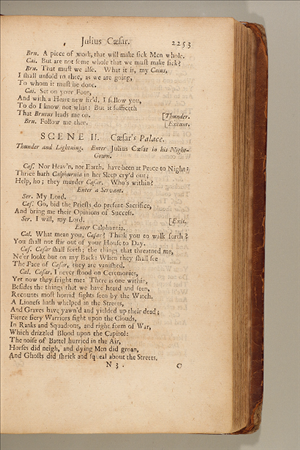 Julius Cæsar. 2253
Bru. A piece of work, that will make sick Men whole.
Cai. But are not some whole that we must make sick?
Bru. That must we also. What it is, my Caius,
I shall unfold to thee, as we are going,
To whom it must be done.
Cai. Set on your Foot,
And with a Heart new fir'd, I follow you,
To do I know not what: But it sufficeth
That Brutus leads me on. [Thunder.
Bru. Follow me then. [Exeunt.
SCENE II. Cæsar's Palace.
Thunder and Lightning. Enter Julius Cæsar in his Night-
Gown.
Cæs. Nor Heav'n, nor Earth, have been at Peace to Night;
Thrice hath Calphurnia in her Sleep cry'd out;
Help, ho; they murder Cæsar. Who's within?
Enter a Servant.
Ser. My Lord.
Cæs. Go, bid the Priests do present Sacrifice,
And bring me their Opinions of Success.
Ser. I will, my Lord. [Exit.
Enter Calphurnia.
Cal. What mean you, Cæsar? Think you to walk forth?
You shall not stir out of your House to Day.
Cæs. Cæsar shall forth; the things that threatned me,
Ne'er lookt but on my Back: When they shall see
The Face of Cæsar, they are vanished.
Cal. Cæsar, I never stood on Ceremonies,
Yet now they fright me: There is one within,
Besides the things that we have heard and seen,
Recounts most horrid sights seen by the Watch.
A Lioness hath whelped in the Streets,
And Graves have yawn'd and yielded up their dead;
Fierce fiery Warriors fight upon the Clouds,
In Ranks and Squadrons, and right form of War,
Which drizzled Blood upon the Capitol:
The noise of Battel hurried in the Air,
Horses did neigh, and dying Men did groan,
And Ghosts did shriek and squeal about the Streets.
N 3 O